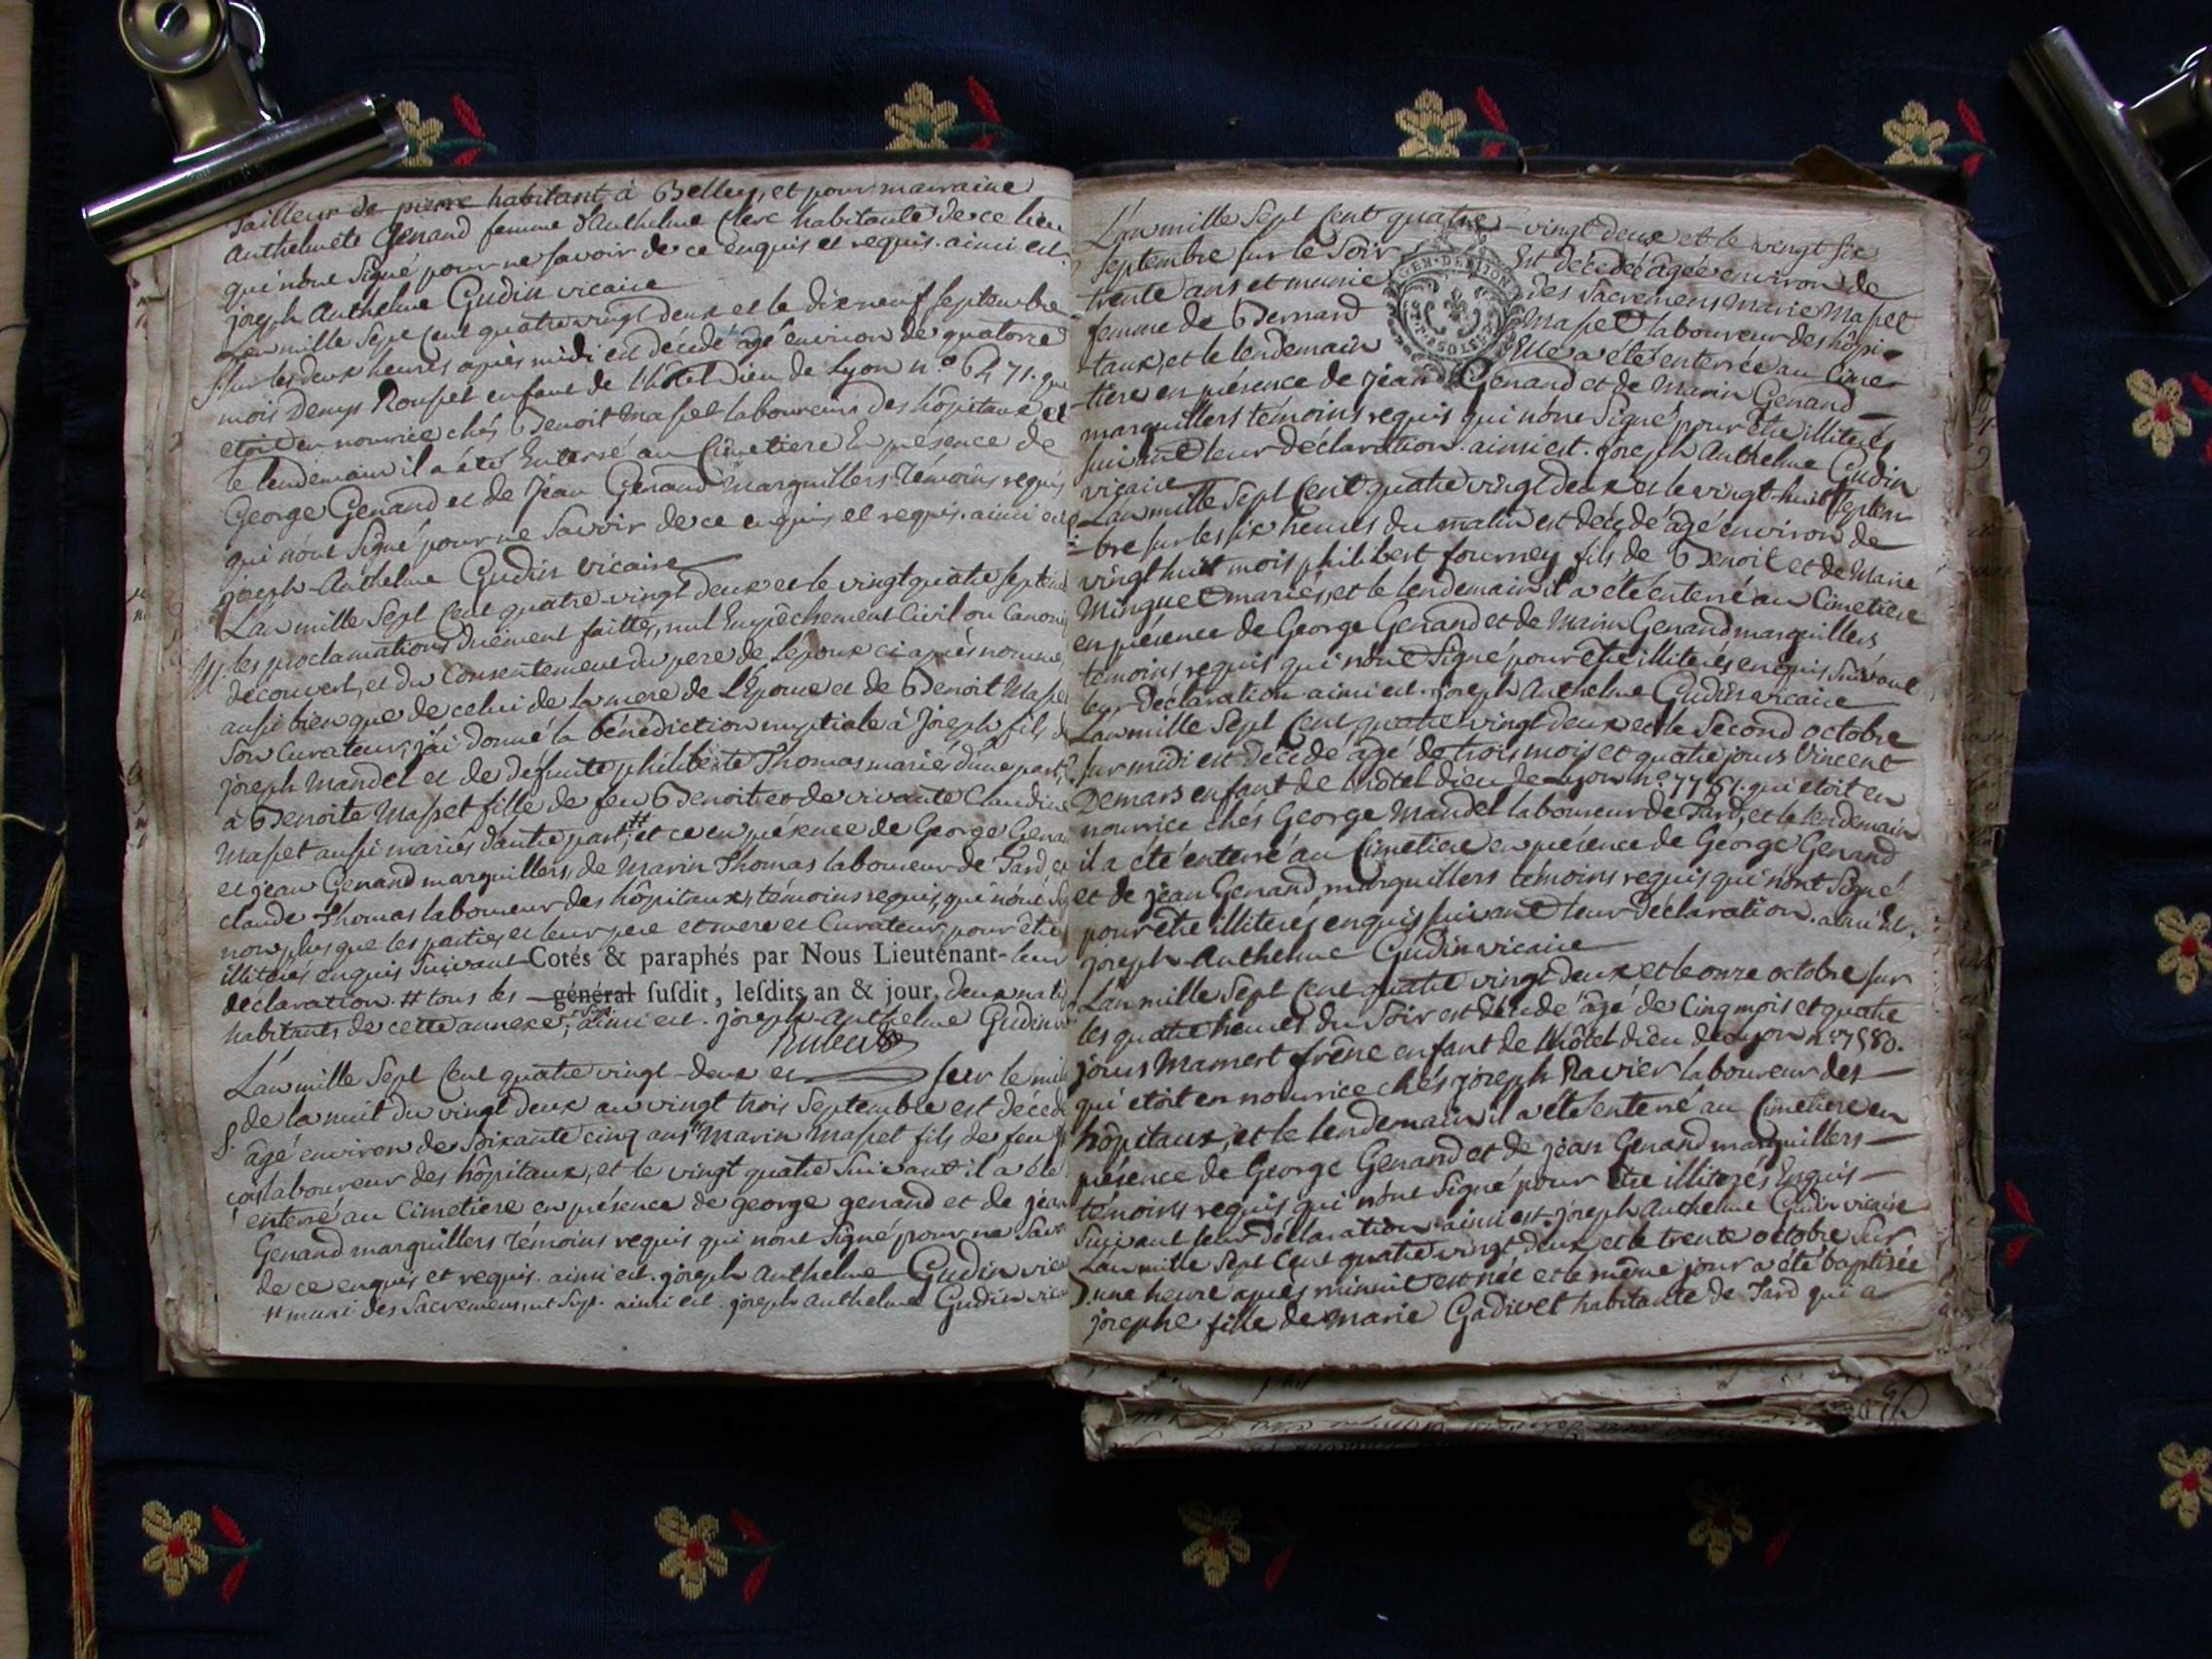 tailleur de pierre habitant à Belley, et pour marraine
Anthelmete Genand femme d'Anthelme Clerc habitante de ce lieu
qui n'ont signé pour ne savoir de ce enquis et requis. ainsi est
joseph Anthelme Gudin vicaire
L'an mille sept cent quatre vingt deux et le dixneuf septembre
sur les deux heures après midi est décédé âgé environ de quatorze
mois Denys Rousset enfant de l'hôtel Dieu de Lyon n.º 6271. qui
etoit en nourrice chés Benoit Masset laboureur des hôpitaux et
le lendemain il a été enterré au Cimetiere en présence de
George Genand et de Jean Genand marguilliers témoins requis
qui n'ont signé pour ne savoir de ce enquis et requis. ainsi est
joseph Anthelme Gudin vicaire
L'an mille sept cent quatre vingt deux et le vingt quatre septem
M. les proclamations duëment faittes, nul empêchement Civil ou Canoni
découvert, et du Consentement du pere de l'époux ci après nommé
aussi bien que de celui de la mere de l'épouse et de Benoit Masset
son Curateur, j'ai donné la bénédiction nuptiale à joseph fils de
joseph Mandel et de défunte philiberte Thomas mariés d'une part,
à Benoite Masset fille de feu Benoit et de vivante Claudine
Masset aussi mariés d'autre part, # et ce en présence de George Genand
et jean Genand marguilliers, de Marin Thomas laboureur de Tard et
claude Thomas laboureur des hôpitaux, témoins requis, qui n'ont
non plus que les parties, et leur pere et mere et Curateur, pour être
illiterés enquis suivant Cotés & paraphés par Nous Lieutenant- leur
declaration. # tous les général ſuſdit, leſdits an & jour. deux nati
habitants de cette annexe, ainsi est. joseph Anthelme Gudin
L'an mille sept cent quatre vingt deux et sur le mi
de la nuit du vingt deux au vingt trois septembre est décédé
S. âgé environ de soixante cinq ans # Marin Masset fils de feu
laboureur des hôpitaux, et le vingt quatre suivant il a été
enterré au Cimetiere en présence de george genand et de jean
Genand marguilliers témoins requis qui n'ont signé pour ne savoir
de ce enquis et requis. ainsi est. joseph Anthelme Gudin vicaire
# muni des sacremens, ut supr. ainsi est. joseph Anthelme Gudin
L'an mille sept cent quatre vingt deux et le vingt six
septembre sur le soir est décédée âgée environ de
trente ans et munie des sacremens Marie Masset
femme de Bernard Masset laboureur des hôpi-
taux, et le lendemain elle a été enterrée au Cime-
tiere en présence de jean Genand et de Marin Genand
marguilliers témoins requis qui n'ont signé pour être illiterés
suivant leur déclaration. ainsi est. joseph Anthelme Gudin
vicaire
L'an mille sept cent quatre vingt deux et le vingt-huit septem-
bre sur les six heures du matin est décédé âgé environ de
vingt huit mois philibert fourney fils de Benoit et de Marie
Minguet mariés, et le lendemain il a été enterré au Cimetiere
en présence de George Genand et de Marin Genand marguilliers
témoins requis qui n'ont signé pour être illiterés enquis suivant
leur déclaration ainsi est. joseph Anthelme Gudin vicaire
L'an mille sept cent quatre vingt deux et le second octobre
sur midi est décédé âgé de trois mois et quatre jours Vincent
Demars enfant de l'hôtel dieu de Lyon n.º 7761. qui etoit en
nourrice chés George Mandel laboureur de Tard, et le lendemain
il a été enterré au Cimetiere en présence de George Genand
et de jean Genand, marguilliers témoins requis qui n'ont signé
pour être illiterés enquis suivant leur déclaration. ainsi est.
joseph Anthelme Gudin vicaire
L'an mille sept cent quatre vingt deux et le onze octobre sur
les quatre heures du soir est décédé âgé de cinq mois et quatre
jours Mamert frêne enfant de l'hôtel dieu de Lyon n.º 7580.
qui etoit en nourrice chés joseph Ravier laboureur des
hôpitaux, et le lendemain il a été enterré au Cimetiere en
présence de George Genand et de jean Genand marguilliers
témoins requis qui n'ont signé pour être illiterés enquis
suivant leur déclaration. ainsi est. joseph Anthelme Gudin vicaire
L'an mille sept cent quatre vingt deux et le trente octobre sur
une heure après minuit est née et le même jour a été baptisée
josephe fille de marie Gadivet habitante de Tard qui a